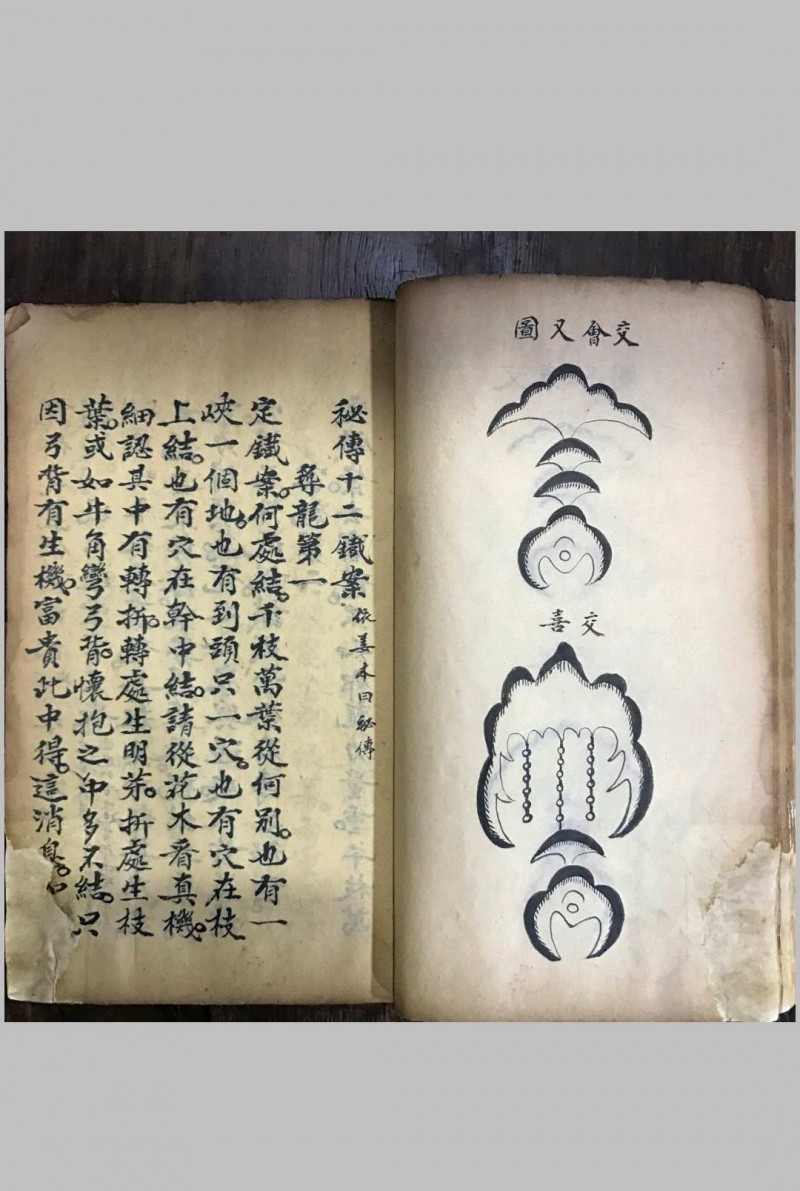 交會又圖
交喜
秘傳十二鐵案 依姜本曰秘傳
尋龍第一
定鐵案。何處結。千枝萬葉從何別。也有一
峽一個地。也有到頭只一穴。也有穴在枝
上結。也有穴在幹中結。請從花木看真機。
細認其中有轉折。轉處生明芽。折處生枝
葉。或如牛角彎弓背。懷抱之中多不結。只
因弓背有生機。富貴此中得。這消息。